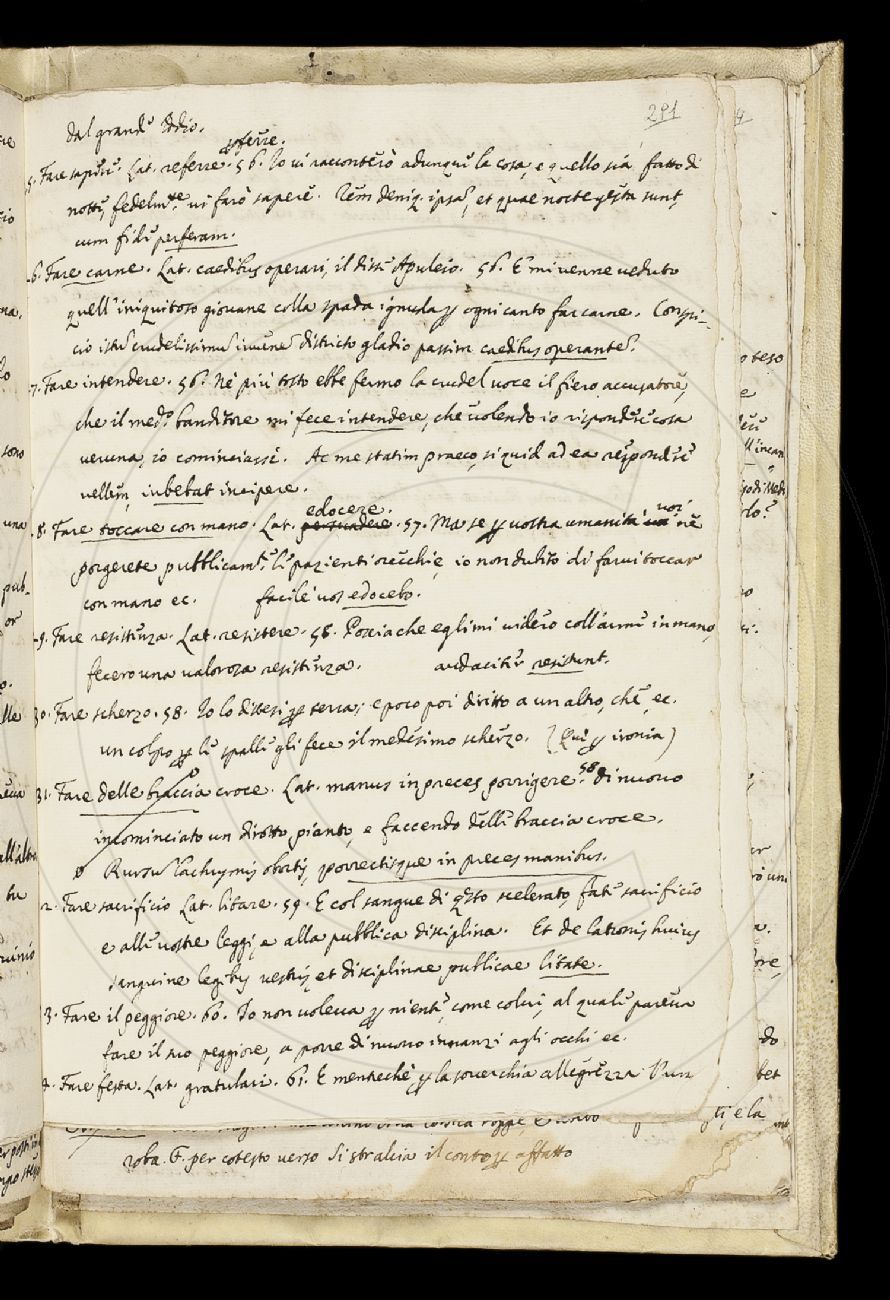 291
dal grande Iddio.
proferre.
5. Fare sapere. Lat. referre. 56. Io vi racconterò adunque la cosa, e quello sia fatto di
notte fedelmte. vi farò sapere. Rem deniq. ipsa, et quae nocte gesta sunt,
cum fide perferam.
6. Fare carne. Lat. caedibus operari, il disse Apuleio. 56. E mi venne veduto
quell'iniquitoso giovane colla spada ignuda per ogni canto far carne. Conspi-
cio istu crudelissimu iuvene districto gladio passim caedibus operante.
7. Fare intendere. 56. Nè piú tosto ebbe fermo la crudel voce il fiero accusatore,
che il medo. banditore mi fece intendere, che volendo io rispondere cosa
veruna, io cominciassi. Ac me statim praeco, siquid ad ea respondere
vellem, iubebat incipere.
edocere. voi
8. Fare toccare con mano. Lat. persuadere. 57. Ma se per vostra umanità ne
porgerete pubblicamte. le pazienti orecchie, io non dubito di farvi toccar
con mano ec. facile vos edocebo.
9. Fare resistenza. Lat. resistere. 58. Poscia che eglimi videro coll'arme in mano,
fecero una valorosa resistenza. audaciter resistunt.
30. Fare scherzo. 58. Io lo distesi per terra; e poco poi diritto a un altro, che, ec.
un colpo per le spalle gli fece il medesimo scherzo. (Qui per ironia)
31. Fare delle braccia croce. Lat. manus in preces porrigere. 58. di nuovo
incominciato un dirotto pianto, e faccendo delle braccia croce.
Rursu lachrymis obortis, porrectisque in preces manibus.
2. Fare sacrificio Lat. litare. 59. E col sangue di qsto scelerato, fate sacrificio
e alle vostre leggi, e alla pubblica disciplina. Et de latronis huius
sanguine legibus vestris, et disciplinae publicae litate.
3. Fare il peggiore. 60. Io non voleva per niente, come colui, al quale pareva
fare il suo peggiore, a porre di nuovo innanzi agli occhi ec.
4. Fare festa. Lat. gratulari. 61. E mentechè per la soverchia allegrezza
roba. E per cotesto verso si stralcia il conto per affatto